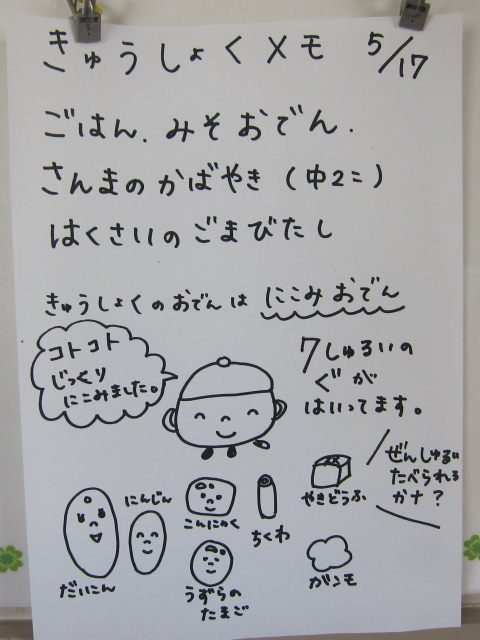 きゅうしょくメモ 5/17
ごはん、みそおでん、
さんまのかばやき(中2こ)
はくさいのごまびたし
きゅうしょくのおでんは にこみおでん
コトコト
じっくり
にこみました。
7しゅるいの
ぐが
はいってます。
ぜんしゅるい
たべられる
カナ?
だいこん
にんじん
こんにゃく
うずらの
たまご
ちくわ
やきどうふ
ガンモ